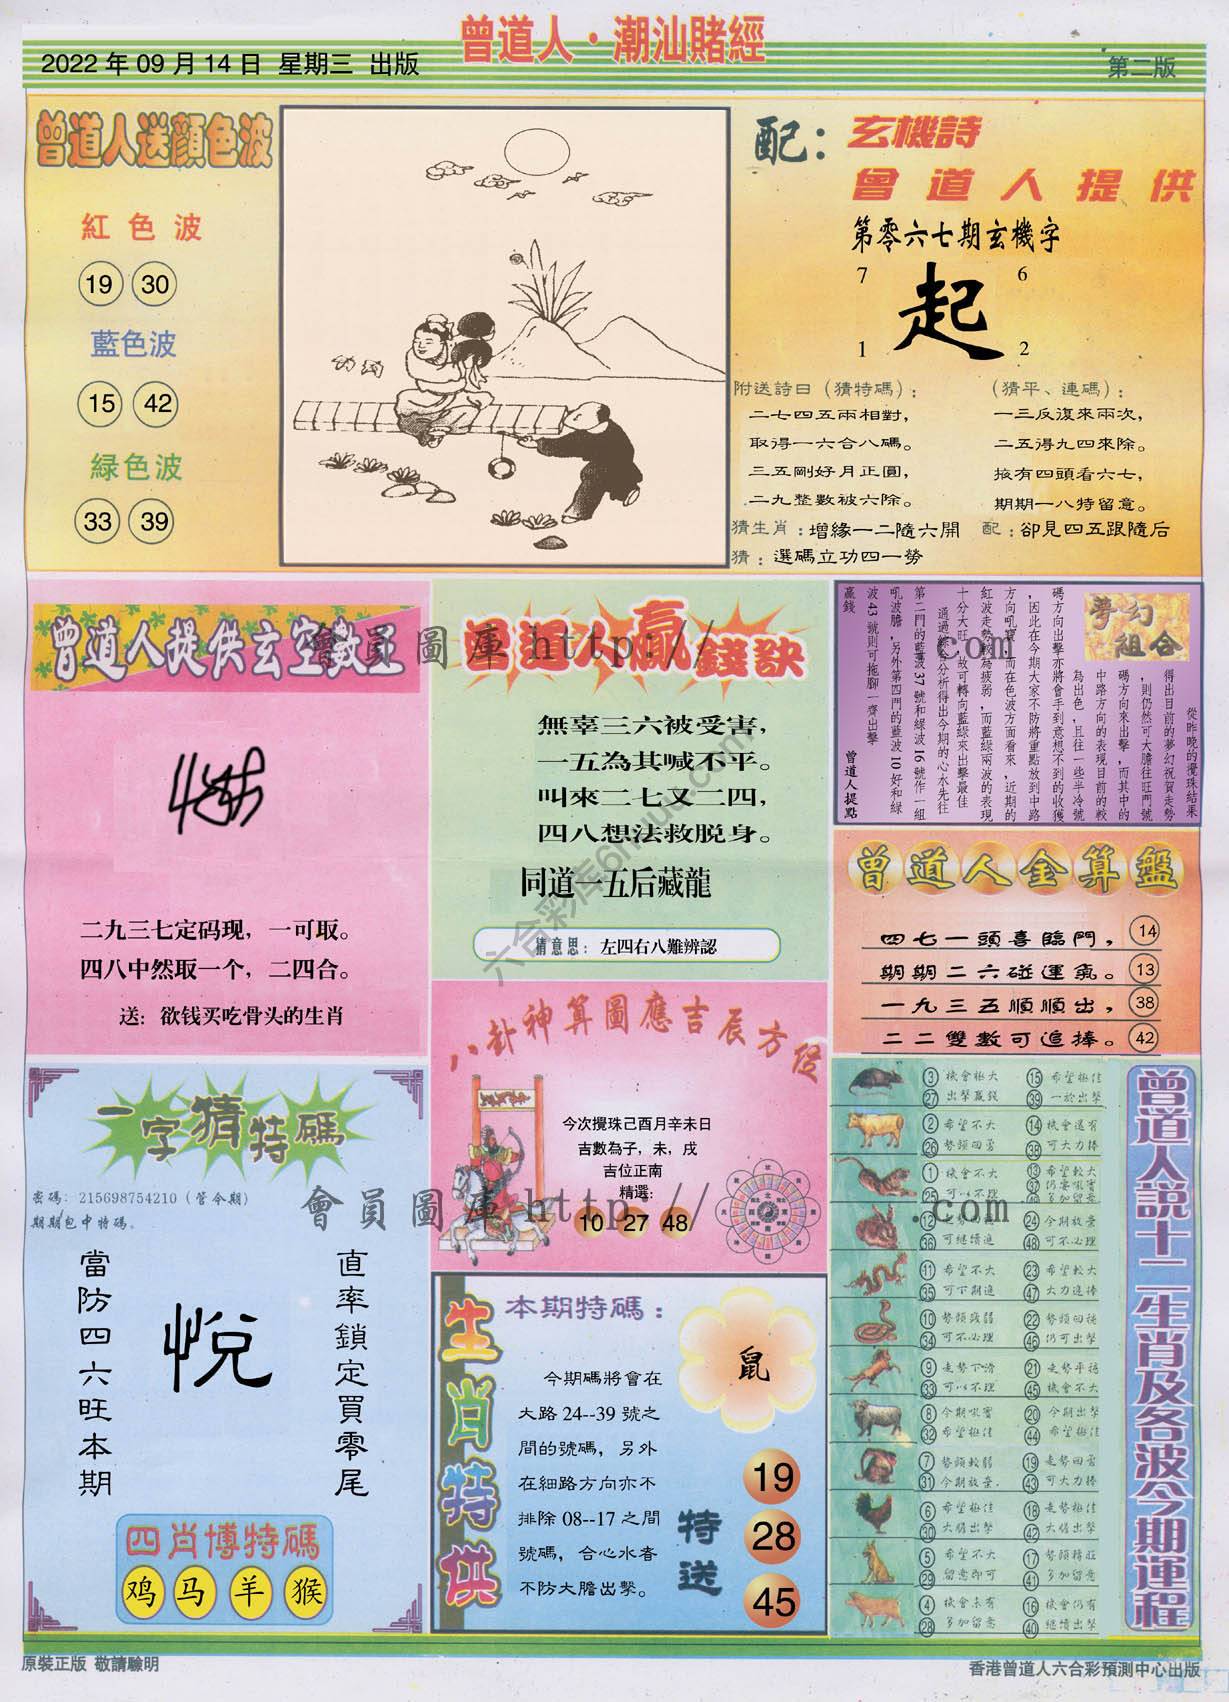 曾道人·潮汕賭經
2022 年 09 月 14 日 星期三 出版
第二版
曾道人送顏色波
紅色波
19 30
藍色波
15 42
綠色波
33 39
配：
玄機詩
曾道人提供
第零六七期玄機字
7 6
起
1 2
附送詩曰（猜特碼）：
二七四五兩相對，
取得一六合八碼。
三五剛好月正圓，
二九整數被六除。
（猜平、連碼）：
一三反復來兩次，
二五得九四來除。
掖有四頭看六七，
期期一八特留意。
猜生肖：增緣一二隨六開
配：卻見四五跟隨后
猜：選碼立功四一勞
曾道人提供玄空數王
二九三七定码现，一可取。
四八中然取一个，二四合。
送：欲钱买吃骨头的生肖
會員圖庫 http://
.com
曾道人贏錢訣
無辜三六被受害，
一五為其喊不平。
叫來二七又二四，
四八想法救脱身。
同道一五后藏龍
猜意思：左四右八難辨認
六合彩库6htuu.com
夢幻組合
從昨晚的攪珠結果
得出目前的夢幻祝賀走勢
，則仍然可大膽往旺門號
碼方向來出擊，而其中的
中路方向的表現目前的較
為出色，且往一些半冷號
碼方向出擊亦將會手到意想不到的收獲
，因此在今期大家不防將重點放到中路
方向吼寶，而在色波方面看來，近期的
紅波走勢較為疲弱，而藍綠兩波的表現
十分大旺，故可轉向藍綠來出擊最佳
通過綜合分析得出今期的心水先往
第二門的藍波 37 號和綠波 16 號作一組
吼波膽，另外第四門的藍波 10 好和綠
波 43 號則可拖腳一齊出擊
贏錢
曾道人提點
曾道人金算盤
四七一頭喜臨門， 14
期期二六碰運氣。 13
一九三五順順出， 38
二二雙數可追捧。 42
八卦神算圖應吉辰方位
今次攪珠己酉月辛未日
吉數為子，未，戌
吉位正南
精選：
10 27 48
一字猜特碼
密碼：215698754210（管令期）
期期包中特碼。
會員圖庫 http://
.com
當防四六旺本期
悅
直率鎖定買零尾
四肖博特碼
鸡 马 羊 猴
生肖特供
本期特碼：
鼠
今期碼將會在
大路 24--39 號之
間的號碼，另外
在細路方向亦不
排除 08--17 之間
號碼，合心水者
不防大膽出擊。
特送
19
28
45
曾道人說十二生肖及各波今期運程
3 機會極大 15 希望極佳
27 出擊贏錢 39 一於出擊
2 希望不大 14 機會還有
26 勢頭回勇 38 可大力捧
1 機會不大 13 希望較大
25 可以不理 37 仍要吼實
49 多加留意
12 走勢回穩 24 今期放棄
36 可繼續追 48 可不必理
11 希望不大 23 希望較大
35 可下期追 47 大力追捧
10 勢頭減弱 22 勢頭回穩
34 可不必理 46 仍可出擊
9 走勢下滑 21 走勢平穩
33 可以不理 45 機會不大
8 今期吼實 20 今期出擊
32 希望極佳 44 希望極佳
7 勢頭較弱 19 走勢回勇
31 今期放棄. 43 可大力捧
6 希望極佳 18 走勢極佳
30 大膽出擊 42 大膽出擊
5 希望不大 17 勢頭轉旺
29 留意即可 41 多加留意
4 機會未有 16 機會仍有
28 多加留意 40 繼續出擊
原裝正版 敬請驗明
香港曾道人六合彩預測中心出版